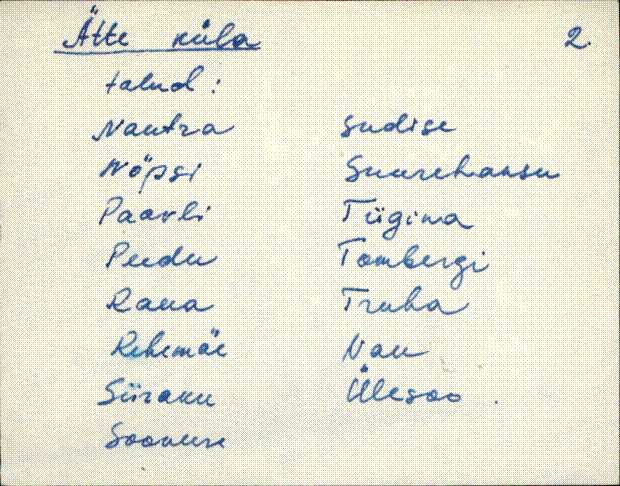 Ätte küla 2.
talud:
Nautra
Nöpsi
Paavli
Peedu
Raua
Rehemäe
Siiraku
Soovere
Sudise
Suurehansu
Tiigima
Tombergi
Truba
Nau
Ülesoo.